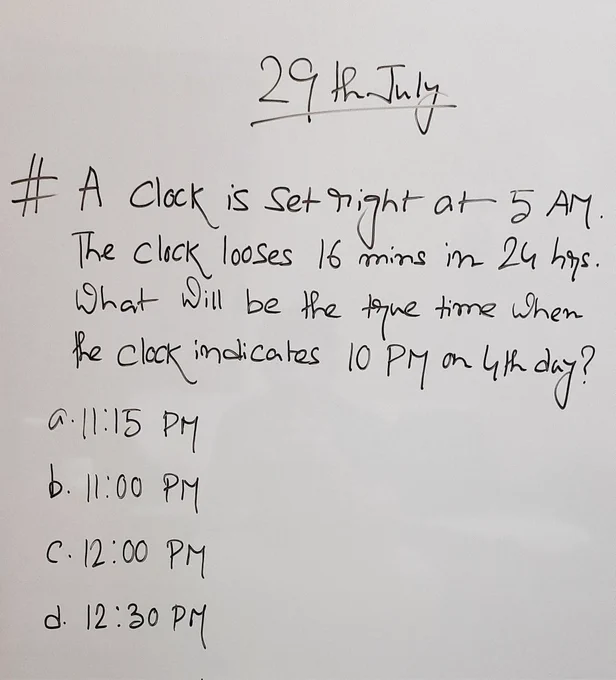 29th July
# A Clock is Set right at 5 AM.
The clock looses 16 mins in 24 hrs.
What Will be the true time when
the clock indicates 10 PM on 4th day?
a. 11:15 PM
b. 11:00 PM
C. 12:00 PM
d. 12:30 PM